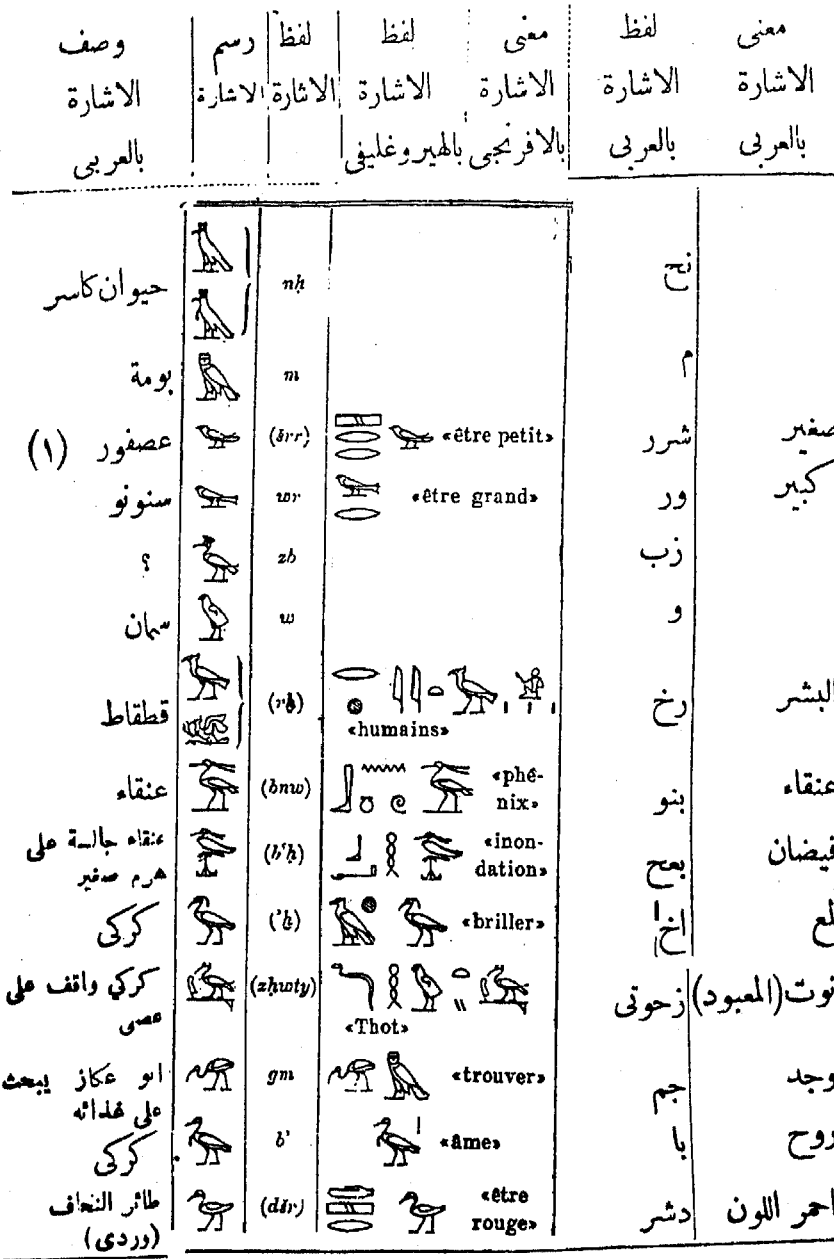 معنى الاشارة بالعربى | لفظ الاشارة بالعربى | معنى الاشارة بالافرنجى | لفظ الاشارة بالهيروغليفى | لفظ الاشارة | رسم الاشارة | وصف الاشارة بالعربى
نح | nḥ | حيوان كاسر
م | m | بومة
صغير | شرر | «être petit» | (šrr) | عصفور (١)
كبير | ور | «être grand» | wr | سنونو
زب | zb | ؟
و | w | سمان
البشر | رخ | «humains» | (rḫ) | قطقاط
عنقاء | بنو | «phé-
nix» | (bnw) | عنقاء
فيضان | بعح | «inon-
dation» | (b‘ḥ) | عنقاء جالسة على
هرم صغير
اخ | «briller» | (’ḫ) | كركى
(المعبود) | زحوتى | «Thot» | (zḥwty) | كركي واقف على
عصى
وجد | جم | «trouver» | gm | ابو عكاز يبحث
على غذائه
روح | با | «âme» | b’ | كركى
احمر اللون | دشر | «être
rouge» | (dšr) | طائر النحاف
(وردى)